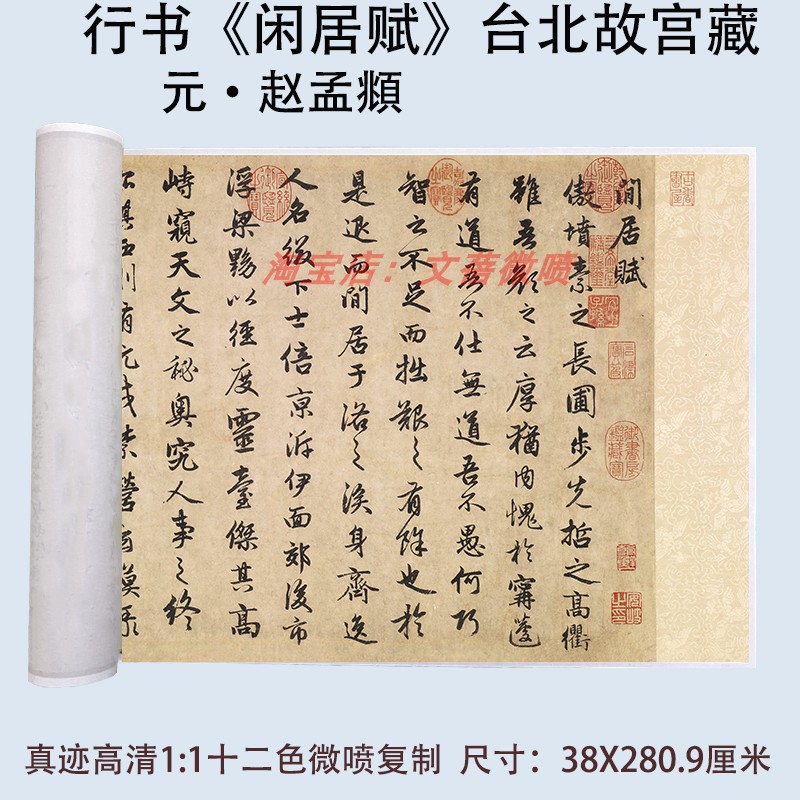 行书《闲居赋》台北故宫藏
元·赵孟頫
閒居賦
傲墳素之長圃步先哲之高衢
雖吾顏之云厚猶內愧於甯蘧
有道吾不仕無道吾不愚何巧
智之不足而拙艱之有餘也於
是退而閒居于洛之涘身齊逸
人名綴下士倍京泝伊面郊後市
浮梁黝以徑度靈臺傑其高
峙窺天文之秘奧究人事之終
御書房鑑藏寶
淘宝店：文菩微喷
真迹高清1:1十二色微喷复制 尺寸：38X280.9厘米